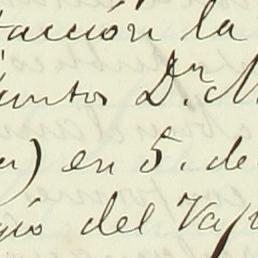 tacción la
untos Dn. M
) en 5. de
gio del Vap